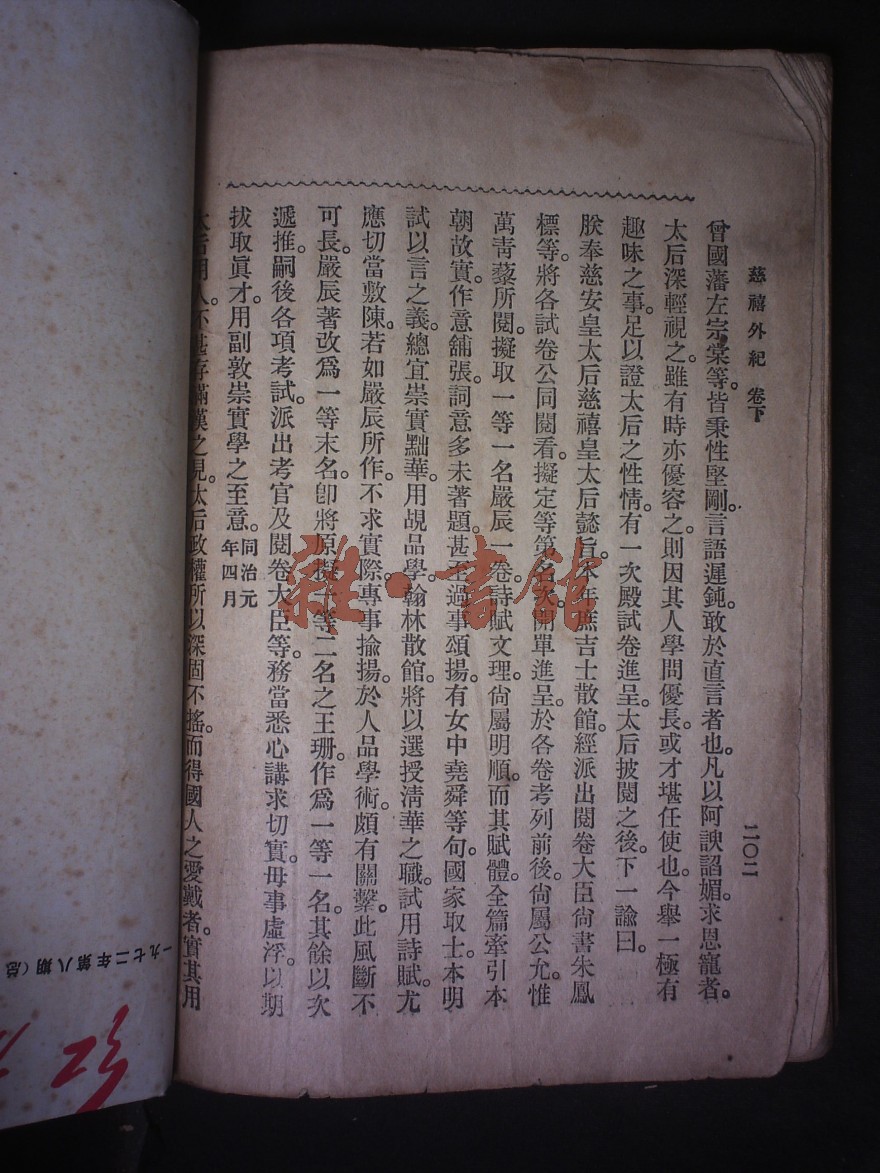 慈禧外紀 卷下
二〇二
曾國藩左宗棠等。皆秉性堅剛。言語遲鈍。敢於直言者也。凡以阿諛諂媚。求恩寵者。
太后深輕視之。雖有時亦優容之。則因其人學問優長。或才堪任使也。今舉一極有
趣味之事。足以證太后之性情。有一次殿試卷進呈。太后披閱之後。下一諭曰。
朕奉慈安皇太后慈禧皇太后懿旨。本年庶吉士散館。經派出閱卷大臣尙書朱鳳
標等。將各試卷公同閱看。擬定等第名次。開單進呈。於各卷考列前後。尙屬公允。惟
萬靑藜所閱。擬取一等一名嚴辰一卷。詩賦文理。尙屬明順。而其賦體。全篇牽引本
朝故實。作意舖張。詞意多未著題。甚至過事頌揚。有女中堯舜等句。國家取士。本明
試以言之義。總宜崇實黜華。用覘品學。翰林散館。將以選授淸華之職。試用詩賦。尤
應切當敷陳。若如嚴辰所作。不求實際。專事揄揚。於人品學術。頗有關繫。此風斷不
可長。嚴辰著改爲一等末名。卽將原擬一等二名之王珊。作爲一等一名。其餘以次
遞推。嗣後各項考試。派出考官及閱卷大臣等。務當悉心講求切實。毋事虛浮。以期
拔取眞才。用副敦崇實學之至意。同治元年四月
太后用人。不甚存滿漢之見。太后政權所以深固不搖。而得國人之愛戴者。實其用
雜·書館
一九七二年第八期(总